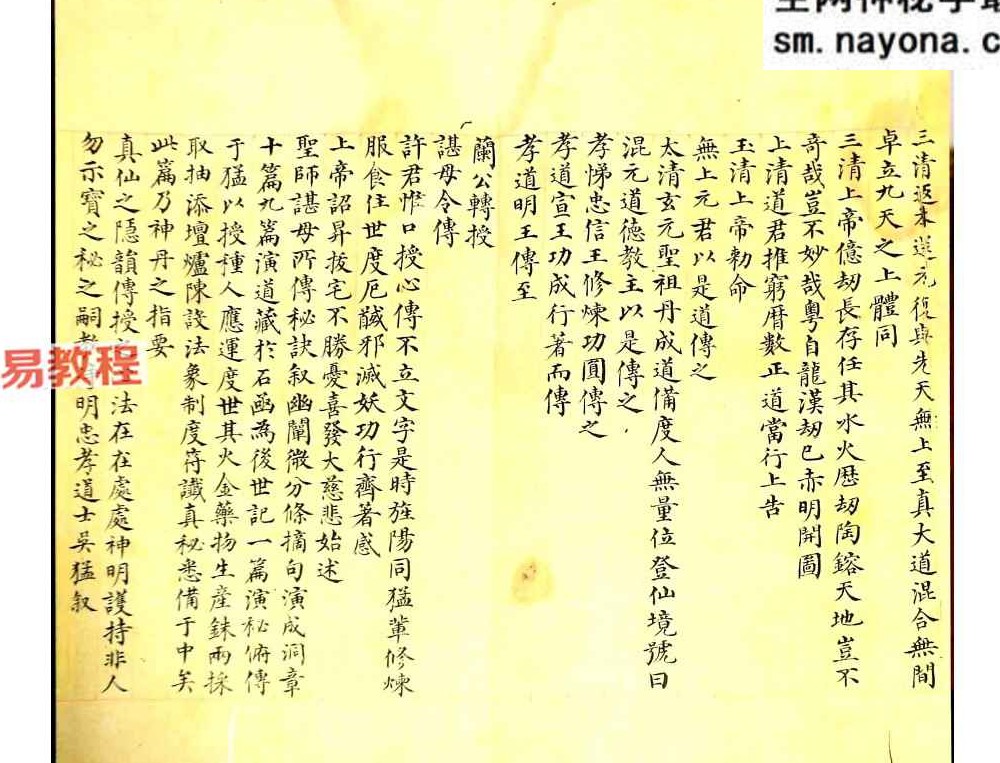 三清返本還元復與先天無上至真大道混合無間
卓立九天之上體同
三清上帝億劫長存任其水火歷劫陶鎔天地豈不
奇哉豈不妙哉粵自龍漢劫已赤明開圖
上清道君推窮曆數正道當行上告
玉清上帝勅命
無上元君以是道傳之
太清玄元聖祖丹成道備度人無量位登仙境號曰
混元道德教主以是傳之
孝悌忠信王修煉功圓傳之
孝道宣王功成行著而傳
孝道明王傳至
蘭公轉授
諶母令傳
許君惟口授心傳不立文字是時旌陽同猛輩修煉
服食住世度厄馘邪滅妖功行齊著感
上帝詔昇拔宅不勝憂喜發大慈悲始述
聖師諶母所傳秘訣叙幽闡微分條摘句演成洞章
十篇九篇演道藏於石函為後世記一篇演秘俯傳
于猛以授種人應運度世其火金藥物生產銖兩採
取抽添壇爐陳設法象制度符讖真秘悉備于中矣
此篇乃神丹之指要
真仙之隱韻傳授之法在在處處神明護持非人
勿示寶之秘之嗣教明忠孝道士吳猛叙
sm.nayona.c
易教程